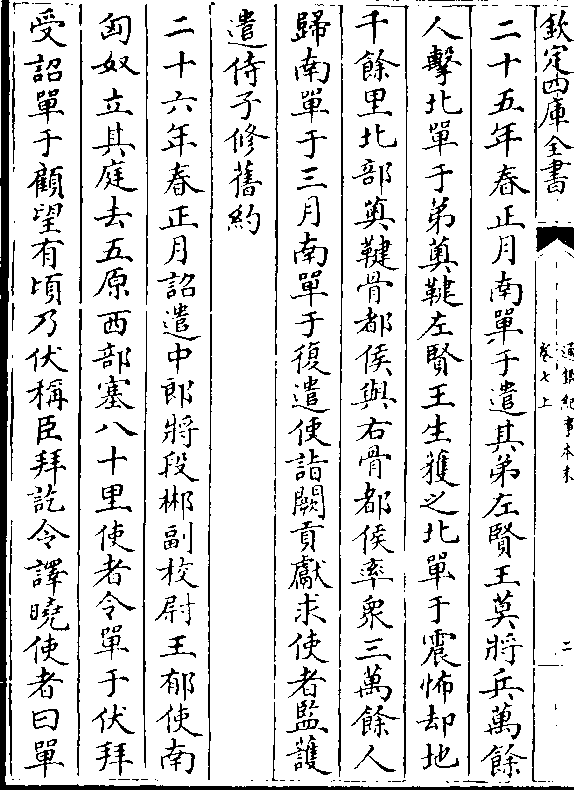 欽定四庫全書
通鑑紀事本末
卷七上
二
二十五年春正月南單于遣其弟左賢王莫將兵萬餘
人擊北單于弟薁鞬左賢王生獲之北單于震怖却地
千餘里北部薁鞬骨都侯與右骨都侯率衆三萬餘人
歸南單于三月南單于復遣使詣闕貢獻求使者監護
遣侍子修舊約
二十六年春正月詔遣中郎將段郴副校尉王郁使南
匈奴立其庭去五原西部塞八十里使者令單于伏拜
受詔單于顧望有頃乃伏稱臣拜訖令譯曉使者曰單